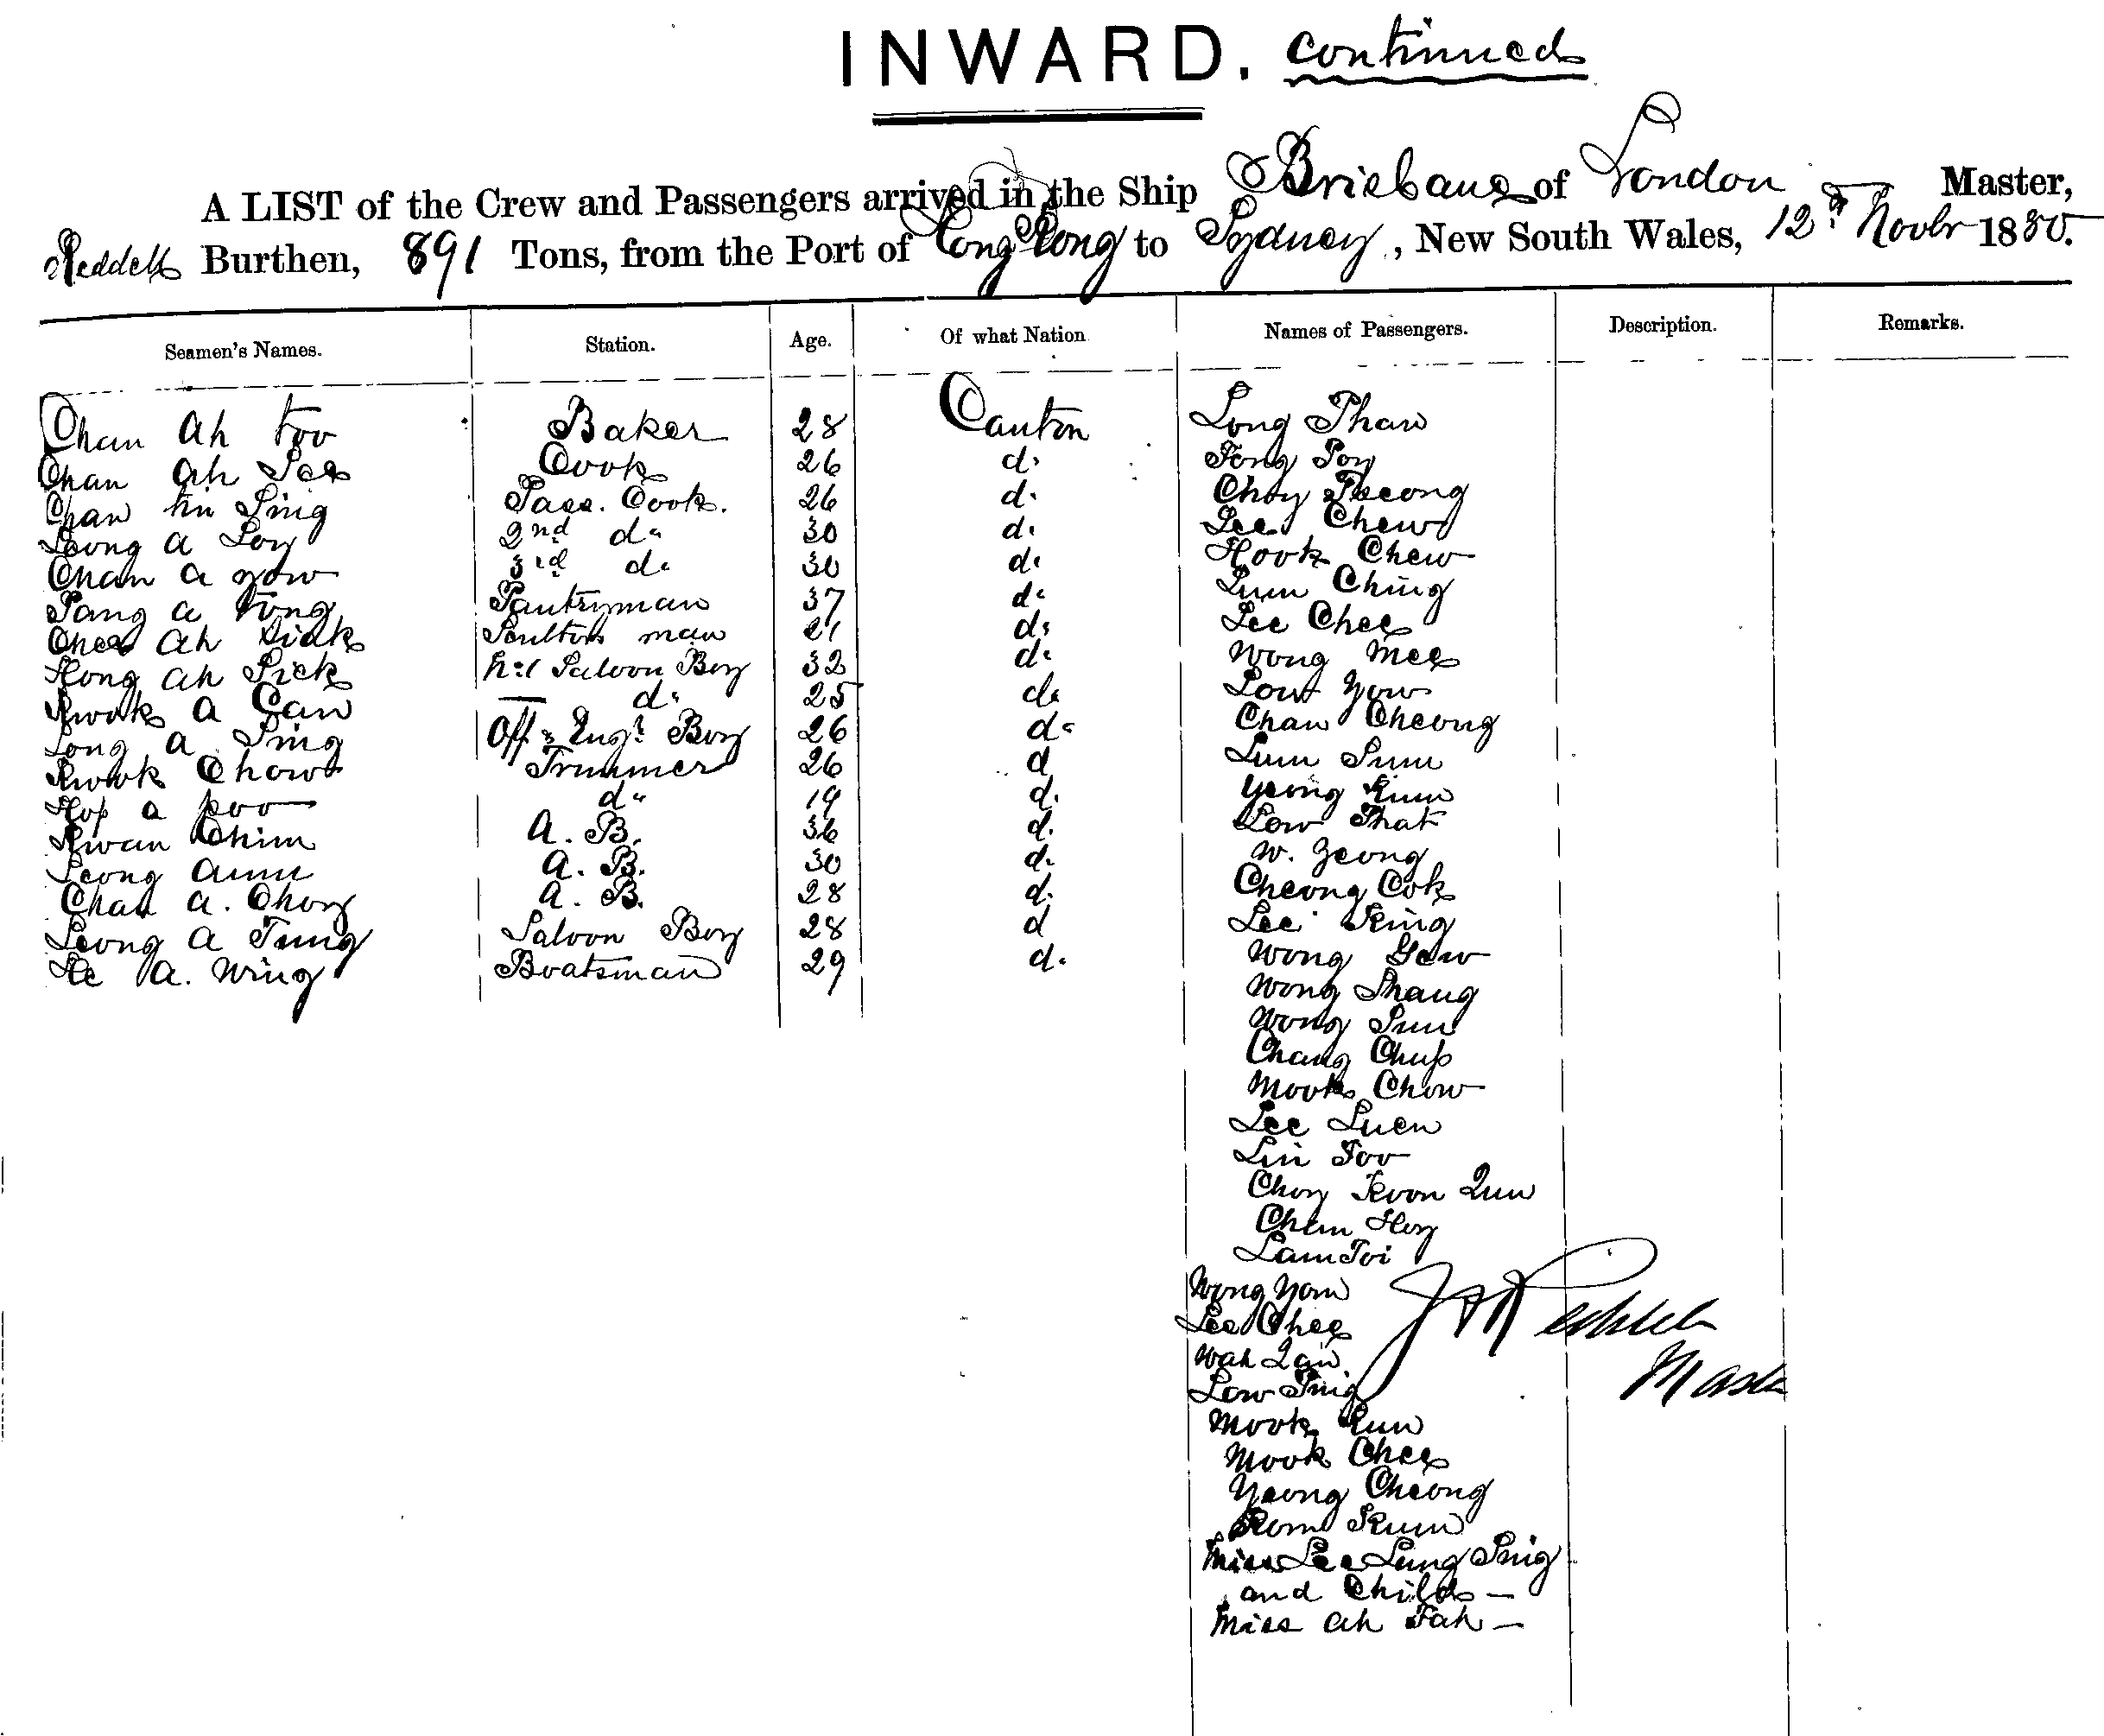 INWARD. continued
A LIST of the Crew and Passengers arrived in the Ship Brisbane of London Master,
Reddell Burthen, 891 Tons, from the Port of Hong Kong to Sydney, New South Wales, 12th Novbr 1880.
Seamen's Names. Station. Age. Of what Nation Names of Passengers. Description. Remarks.
Chan Ah Foo Baker 28 Canton Long Shaw
Chan Ah See Cook 26 do Fong Poy
Chan Pass. Cook. 26 do Choy
Leong a Loy 2nd do 30 do Lee Chew
Chan a yow 3rd do 30 do Hook Chew
a Pantryman 37 do Lum Ching
Chee Ah man 21 do Lee Chee
Hong Ah Sick Saloon Boy 32 do Wong Mee
Kwok a Can do 25 do Low Yow
Long a Sing Off & Engr Boy 26 do Chan Cheong
Kwok Chow Trimmer 26 do Lum Sum
Hop a poo do 19 do Yeong Kum
Kwan Chim A. B. 36 do Low That
Leong A. B. 30 do W. Yeong
Chan a. Choy A. B. 28 do Cheong Cok
Leong a Tung Saloon Boy 28 do Lee King
a. Wing Boatsman 29 do Wong Yew
Wong Shang
Wong Sun
Chang Chup
Mook Chow
Lee Luen
Lin Foo
Choy Kwon Lum
Chun Hoy
Lam Toi
Wong Yow
Lee Chee
Wah Lain
Low Sing
J Reddell
Master
Mook Kun
Mook Chee
Yeong Cheong
Kum
Miss Lee Lung Sing
and Child —
Miss Ah Fah —